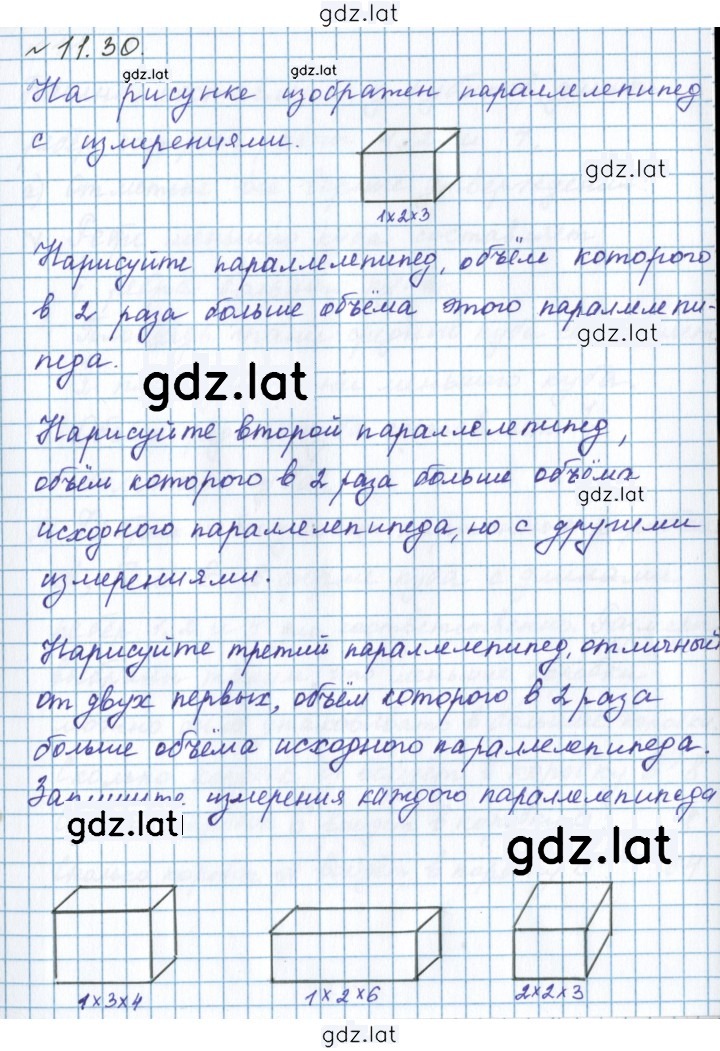 gdz.lat
№ 11.30.
gdz.lat gdz.lat
На рисунке изображен параллелепипед
с измерениями.
gdz.lat
1×2×3
Нарисуйте параллелепипед, объём которого
в 2 раза больше объёма этого параллелепи-
gdz.lat
педа.
gdz.lat
Нарисуйте второй параллелепипед,
объём которого в 2 раза больше объёма
gdz.lat
исходного параллелепипеда, но с другими
измерениями.
Нарисуйте третий параллелепипед, отличный
от двух первых, объём которого в 2 раза
больше объёма исходного параллелепипеда.
Запишите измерения каждого параллелепипеда
gdz.lat
gdz.lat
1×3×4 1×2×6 2×2×3
gdz.lat